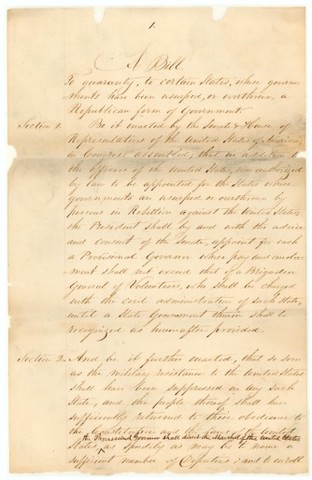 1.
A Bill
To guaranty, to certain States, whose govern
ments have been usurped, or overthrown, a
Republican form of Government.
Section 1. Be it enacted by the Senate & House of
Representatives of the United States of America,
in Congress assembled, that in addition to
the officers of the United States, now authorized
by law to be appointed for the States whose
governments are usurped or overthrown by
persons in Rebellion against the United States,
the President shall by and with the advice
and consent of the Senate, appoint for each
a Provisional Governor whose pay and emolu
ment shall not exceed that of a Brigadier
General of Volunteers, who shall be charged
with the civil administration of such State,
until a State Government therein shall be
recognized as hereinafter provided.
Section 2. And be it further enacted, that so soon
as the military resistance to the United States
shall have been suppressed in any such
State, and the people thereof shall have
sufficiently returned to their obedience to
the Constitution and the laws of the United
the Provisional Governor shall direct the Marshal of the United States
States, as speedily as may be to name a
sufficient number of Deputies; and to enroll